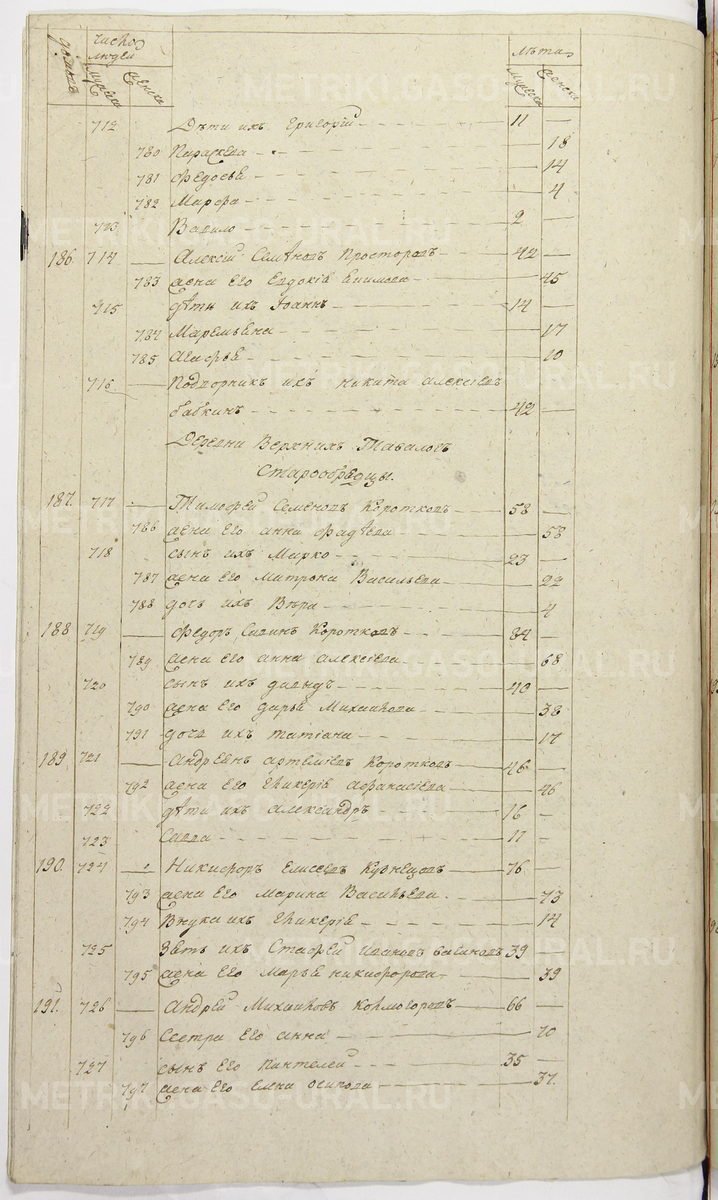 дворы число людей лѣта
мужеска женска мужеска женска
712 Дѣти ихъ Григорій 11
780 Параскева 18
781 Федосья 14
782 Марфа 4
713 Вавило 2
186. 714 Алексій Семѣновъ Просторовъ 42
783 жена Его Евдокія Епимова 45
715 дѣти ихъ Іоаннъ 14
784 Маремьяна 17
785 Агафья 10
716 Подворникъ ихъ никита алексіевъ
бабкинъ 42
Деревни Верхнихъ Таваловъ
Старообрядцы.
187. 717 Тимофей Семеновъ Коротковъ 58
786 жена Его анна Фадѣева 58
718 сынъ ихъ Марко 23
787 жена Его Матрона Васильева 22
788 дочь ихъ Вѣра 4
188 719 Федоръ Савинъ Коротковъ 84
789 жена Его анна алексіева 68
720 сынъ ихъ давыдъ 40
790 жена Его дарья Михайлова 38
791 дочь ихъ татіана 17
189 721 Андреянъ артеміевъ Коротковъ 46
792 жена Его Гликерія афанасіева 46
722 дѣти ихъ александръ 16
723 Савва 11
190. 724 Никифоръ Елисеевъ Кузнецовъ 76
793 жена Его Марина Васильева 73
794 Внука ихъ Гликерія 14
725 Зять ихъ Стафей Ивановъ бабиновъ 39
795 жена Его Марья никифорова 39
191. 726 Андрей Михайловъ Колмогоровъ 66
796 Сестра Его анна 70
727 сынъ Его Пантелей 35
797 жена Его Елна осипова 37.
METRIKI.GASO-URAL.RU